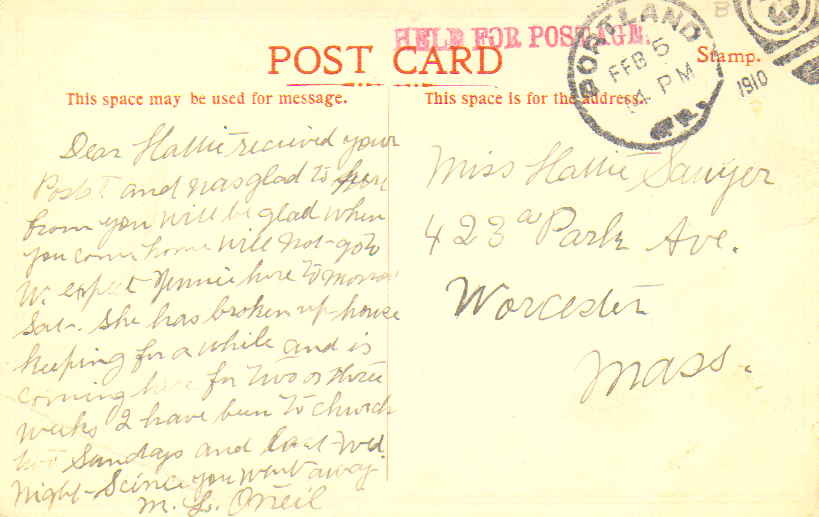 HELD FOR POSTAGE.
POST CARD
Stamp.
PORTLAND
FEB 5
4 PM
1910
ME.
This space may be used for message.
This space is for the address.
Dear Hattie recieved your
Postl and was glad to hear
from you will be glad when
you come home will not go to
We expect Nennie here tomorrow
Sat. She has broken up house
keeping for a while and is
coming here for two or three
weeks I have been to church
two Sundays and last Wed.
Night Scince you went away
M. L. Oneil
Miss Hattie Sawyer
423 a Park Ave.
Worcester
Mass.